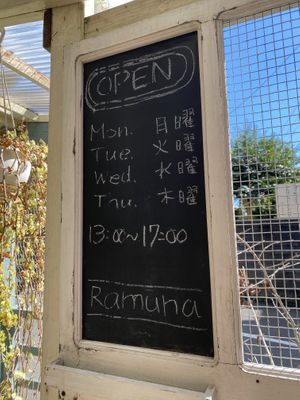 OPEN
Mon. 日曜
Tue. 火曜
Wed. 水曜
Thu. 木曜
13:00~17:00
Ramuna